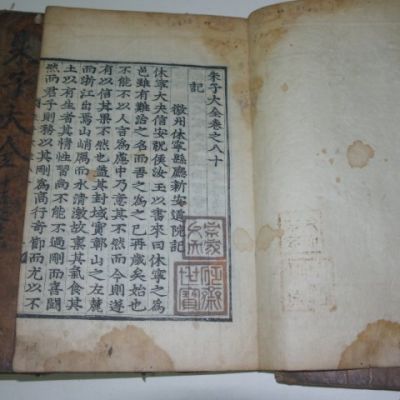 朱子大全卷之八十
記
徽州休寧縣廳新安道院記
休寧大夫信安祝侯汝玉以書來曰休寧之為
邑雖有難治之名而吾之為之已再歲矣始也
不能不以人言為慮中乃意其不然而今則遂
有以信其果不然也蓋其封域實鄣山之左麓
而浙江出焉山峭厲而水清激故稟其氣食其
土以有生者其情性習尚不能不過剛而喜鬭
然而君子則務以其剛為高行奇節而尤以不
朱子大全